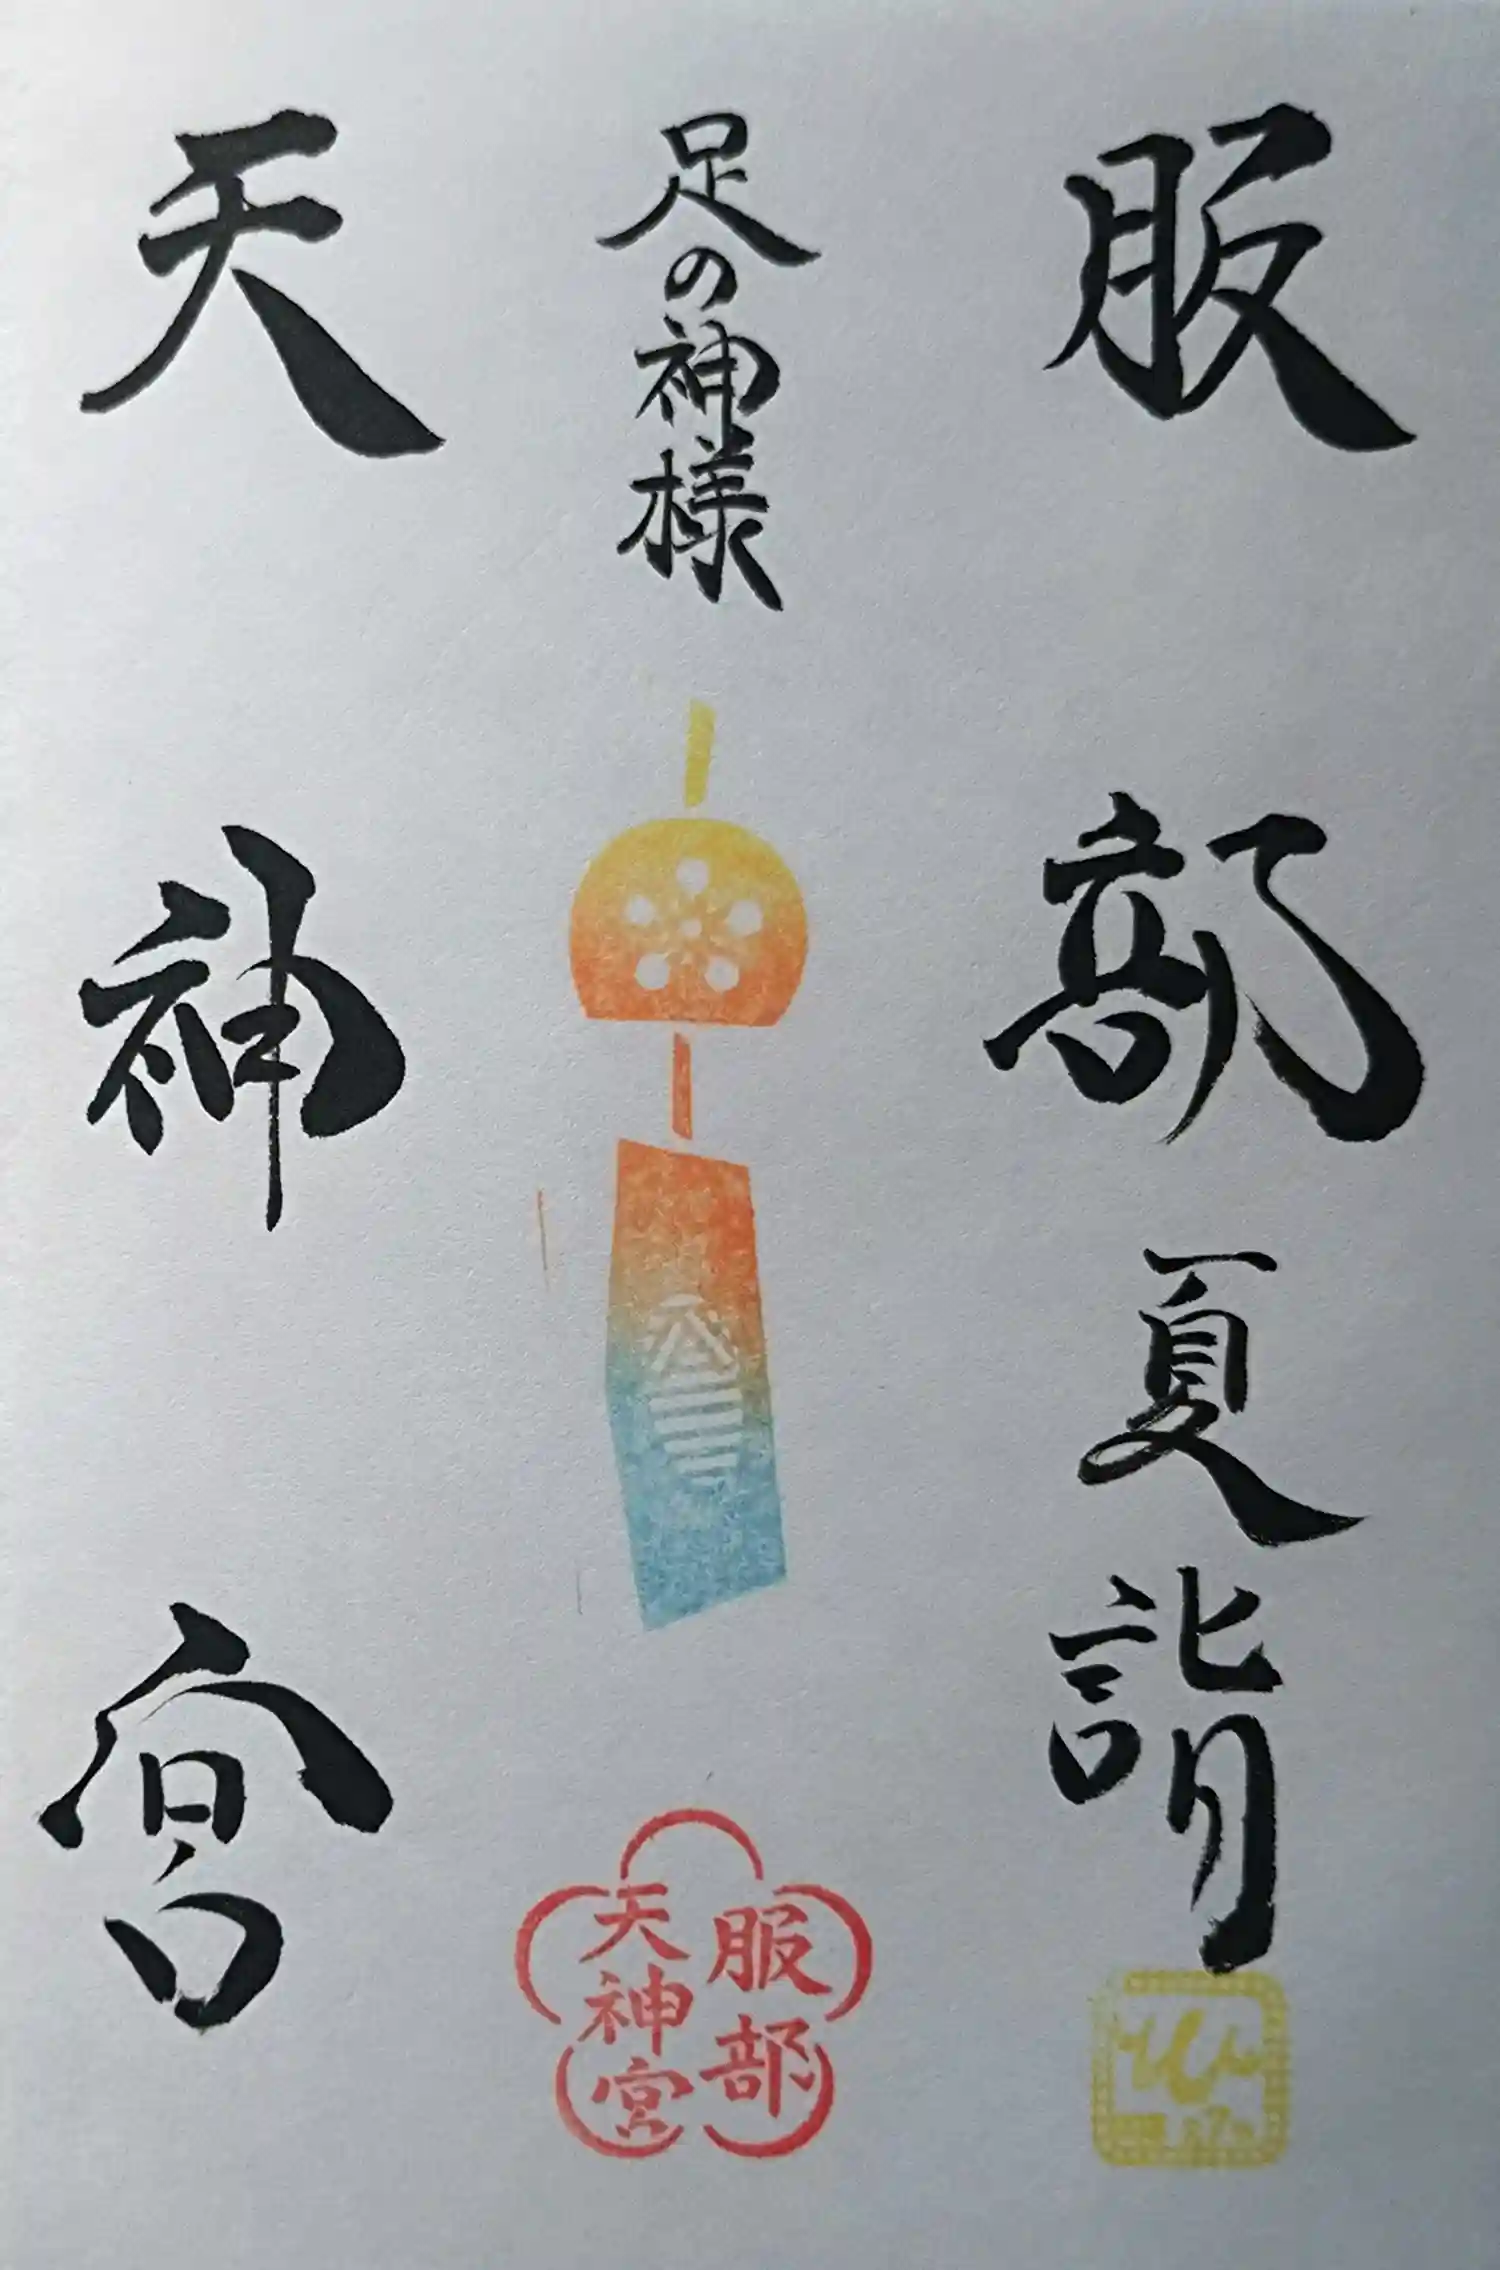 服部夏詣
足の神様
天神宮
服部
天神宮